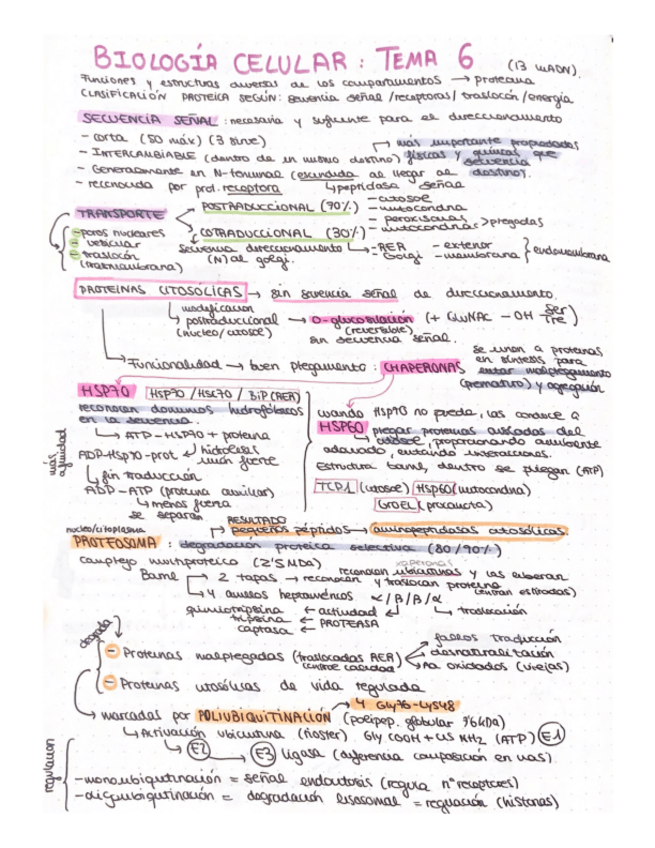 BIOLOGÍA CELULAR : TEMA 6 (13 uADN).
Funciones y estructuras diversas de los compartimentos → proteína
CLASIFICACIÓN PROTEICA SEGÚN: secuencia señal / receptoras / traslocón / energía
SECUENCIA SEÑAL : necesaria y suficiente para el direccionamiento
- corta (50 máx) (3 sirve)
más importante propiedades
- INTERCAMBIABLE (dentro de un mismo destino) físicas y químicas que secuencia
- Generalmente en N-terminal (escindida al llegar al destino).
- reconocida por prot. receptora ↳ peptidasa señal
TRANSPORTE
- poros nucleares
- vesicular
- traslocón (transmembrana)
POSTRADUCCIONAL (70%)
- citosol
- mitocondria
- peroxisomas
- mitocondrias > plegadas
COTRADUCCIONAL (30%)
secuencia direccionamiento (N) al golgi.
- RER
Golgi
- exterior
- membrana } endomembrana
PROTEÍNAS CITOSÓLICAS → sin secuencia señal de direccionamiento.
modificación
↳ postraduccional → O-glucosilación (+ GluNAc - OH Ser Tre)
(núcleo/citosol) (reversible)
sin secuencia señal.
↳ Funcionalidad → buen plegamiento : CHAPERONAS
se unen a proteínas
en síntesis para
evitar malplegamiento
(prematuro) y agregación
HSP70 HSP70 / HSC70 / BiP (RER)
reconocen dominios hidrofóbicos
en la secuencia.
más afinidad
↳ ATP - HSP70 + proteína
ADP-HSP70-prot ↲ hidrólisis unión fuerte
↳ fin traducción
ADP - ATP (proteína auxiliar)
↳ menos fuerza
se separan
cuando HSP70 no puede, las conduce a
HSP60 plegar proteínas aisladas del
↳ citosol, proporcionando ambiente
adecuado, evitando interacciones.
Estructura barril, dentro se pliegan (ATP)
TCP1 (citosol) HSP60 (mitocondria)
GroEL (procariota)
núcleo/citoplasma
RESULTADO
pequeños péptidos → aminopeptidasas citosólicas.
PROTEOSOMA : degradación proteica selectiva (80/90%)
Complejo multiproteico (2'5 MDa)
chaperonas
Barril → 2 tapas → reconocen ubicuitinas y las liberan
y traslocan proteína (entran estiradas)
↳ 4 anillos heptaméricos α/β/β/α ↳ traslocación
quimotripsina ← actividad
tripsina ← PROTEASA
caspasa ←
degrada
- Proteínas malplegadas (traslocadas RER) (control calidad)
fallos traducción
desnaturalización
Aa oxidados (viejas)
- Proteínas citosólicas de vida regulada
4 Gly76-Lys48
↳ marcadas por POLIUBIQUITINACIÓN (polipep. globular 7'6 kDa)
↳ Activación ubicuitina (tioéster) Gly COOH + Lis NH2 (ATP) E1
↳ E2 → E3 ligasa (diferencia composición en vivos).
regulación
- monoubiquitinación = señal endocitosis (regula nº receptores)
- oligoubiquitinación = degradación lisosomal = regulación (histonas)